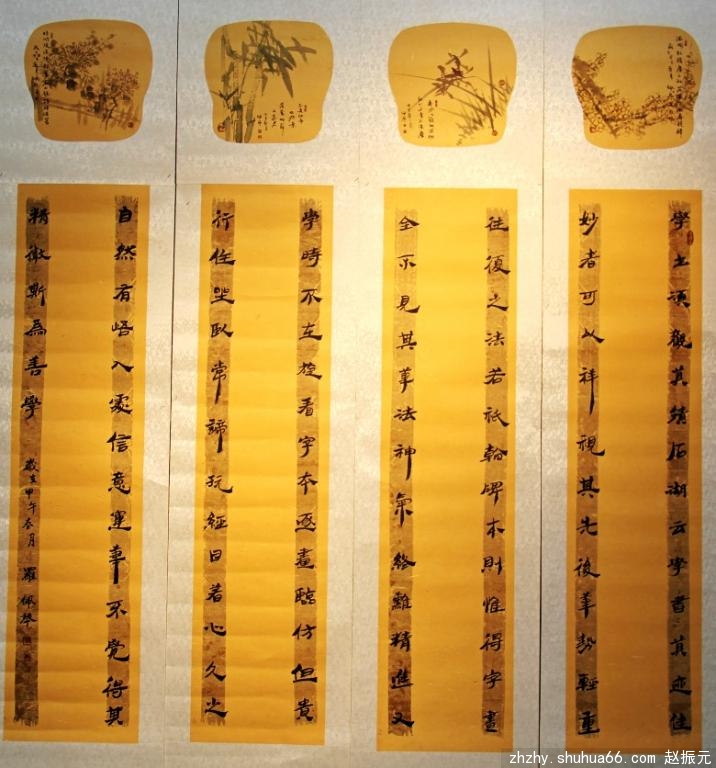 學士須觀真蹟石湖云學書真迹佳
妙者可以祥視其先後筆勢輕重
往復之法若祇翰碑本則惟得字畫
全不見其筆法神氣終難精進又
學時不在旋看字本逐畫臨仿但貴
行住坐臥常諦玩經目著心久之
自然有悟入處信意運筆不覺得其
精微斯為善學 歲在甲午春月 羅佩
zhzhy.shuhua66.com 赵振元